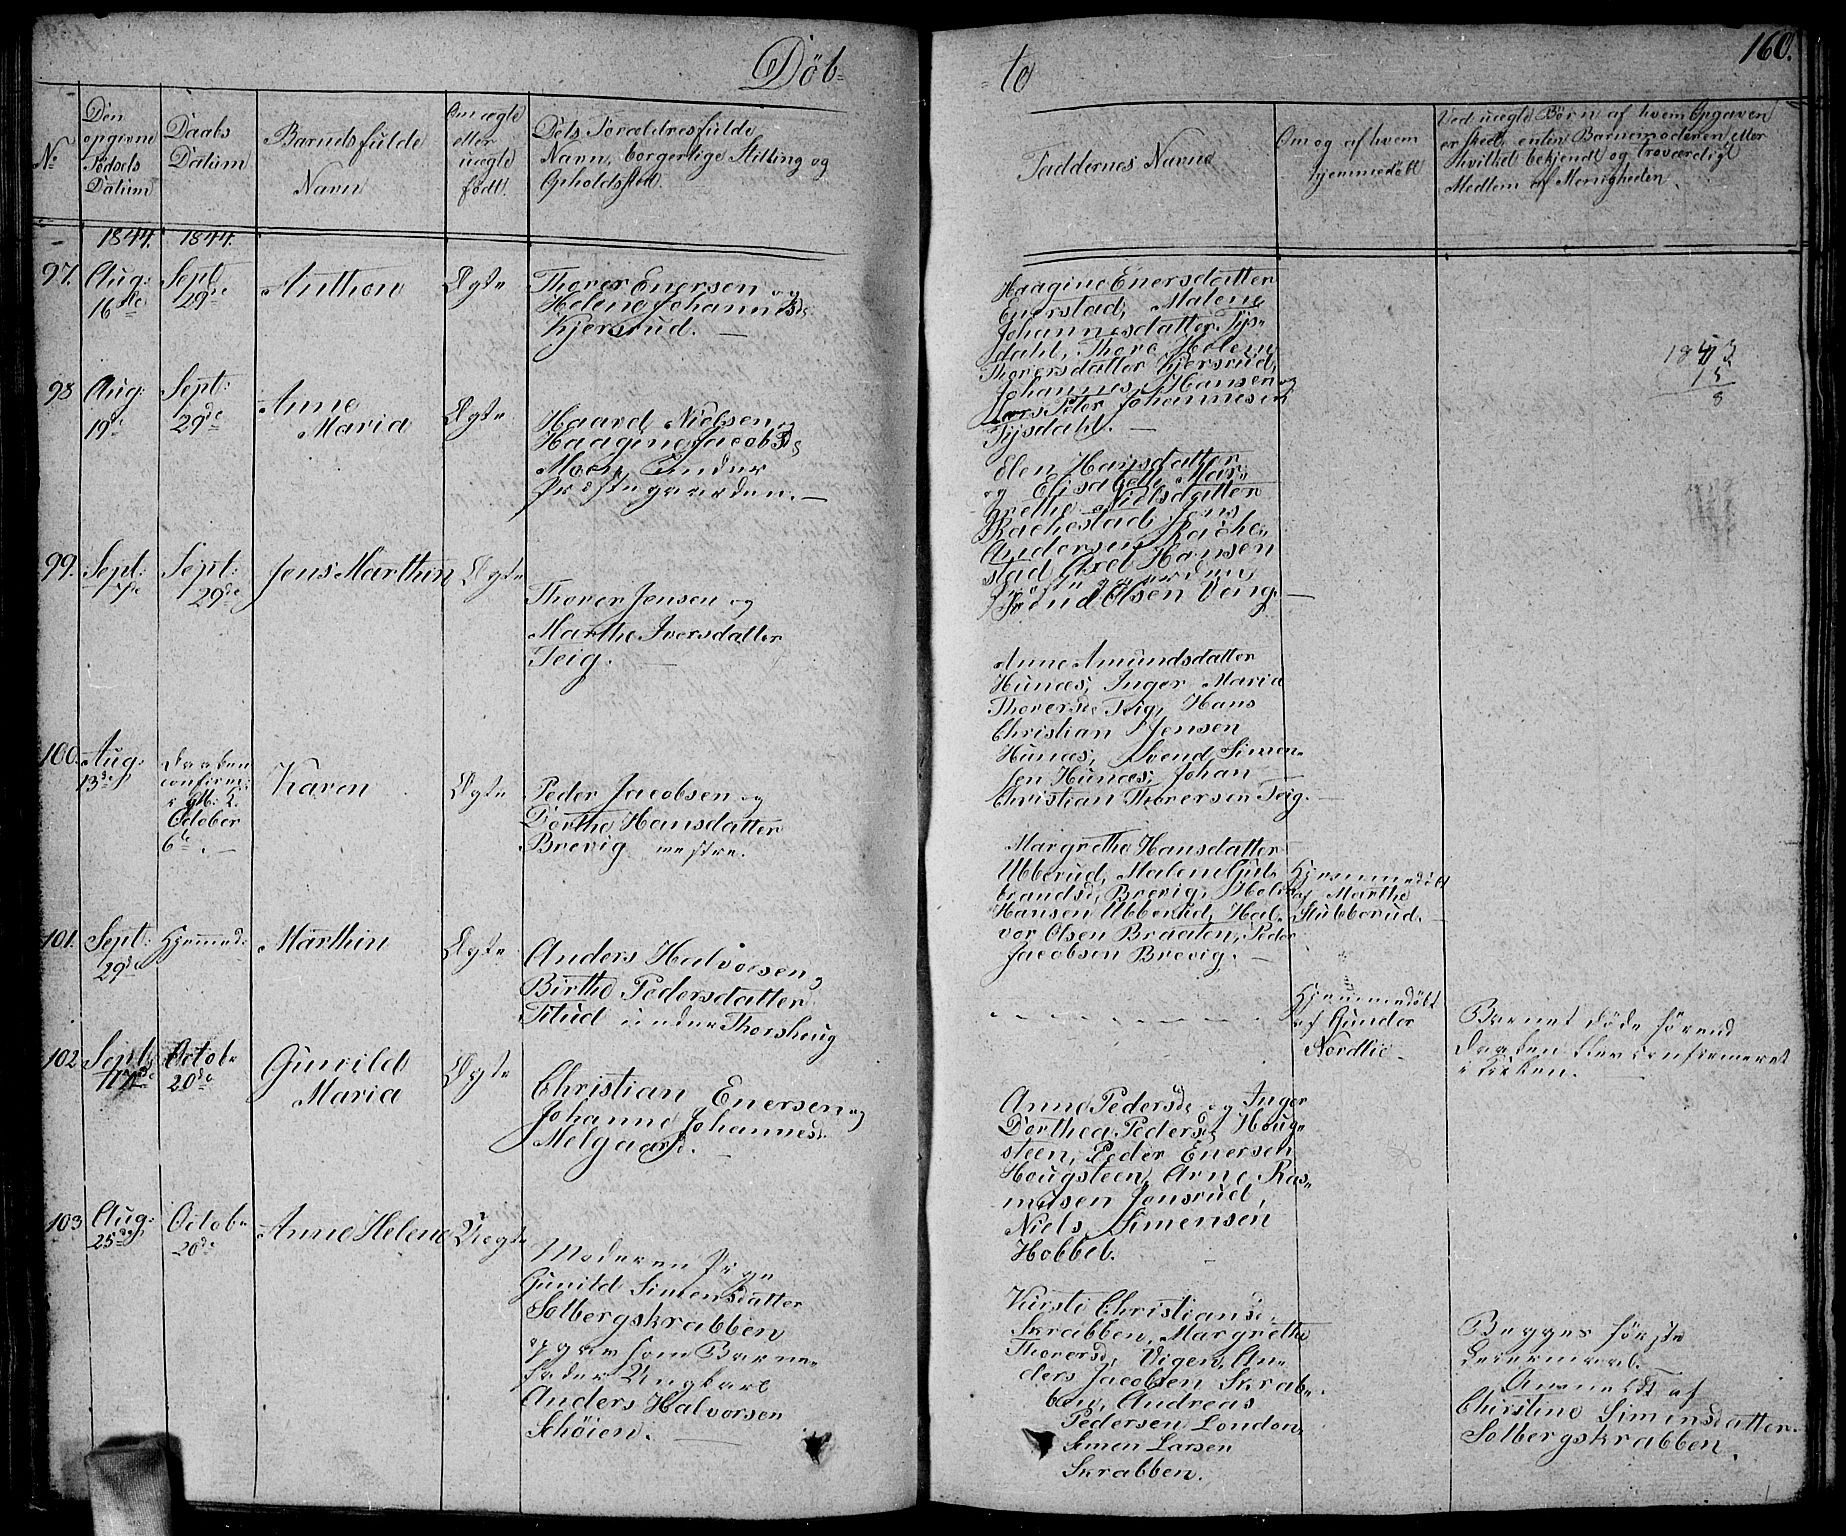 Döb-
-te
160.
No
Den
opgivne
Fødsels
Datum
Daabs
Datum
Barnets fulde
Navn
Om ægte
eller
uægte
født.
Dets Forældres fulde
Navn, borgerlige Stilling og
Opholdssted.
Faddernes Navne
Om og af hvem
hjemmedöbt
Ved uægte Börn af hvem Opgaven
er skeet, enten Barnemoderen eller
hvilket bekjendt og troværdigt
Medlem af Menigheden.
1844. 1844.
97. Aug: 16de
Sept. 29de
Anthon
Ægte
Thorer Enersen og
Helene Johannesd:
Kjersrud. —
Haagine Enersdatter
Enerstad, Malene
Johannesdatter Tys-
dahl, Thore Helene
Thorersdatter Kjersrud,
Johannes Hansen og
Lars Peter Johannesen
Tysdahl. —
98 Aug: 19de
Sept: 29de
Anne
Maria
Ægte
Haard Nielsen og
Haagine Jacobsd:
Moen under
Præstegaarden. —
Elen Hansdatter
og Elisabeth Mar-
grethe Nielsdatter
Rachestad, Jens
Andersen Rache-
stad, Axel Hansen
Præstegaarden
Olsen Veng. —
99. Sept: 7de
Sept: 29de
Jens Marthin
Ægte
Thorer Jensen og
Marthe Iversdatter
Teig. —
Anne Amundsdatter
Hunæs, Inger Maria
Thorersd: Teig, Hans
Christian Jensen
Hunæs, Svend Simen-
sen Hunæs, Johan
Christian Thorersen Teig. —
100. Aug: 13de
Daaben
confirm:
i
October
6te. —
Karen
Ægte
Peder Jacobsen og
Dorthe Hansdatter
Brevig vestre.
Margrethe Hansdatter
Ubberud, Malene Gul-
brandsd: Brevig,
Hansen Ubberud, Hal-
vor Olsen Braaten, Peder
Jacobsen Brevig. —
Hjemmedöbt
af Marthe
Stubberud. —
101. Sept: 29de
Hjemmed:
Marthin
Ægte
Anders Halvorsen og
Birthe Pedersdatter
under Thorshoug
Hjemmedöbt
af Gunder
Nordlie —
Barnet döde förend
Daaben blev confirmeret
i Kirken. —
102 Sept: 17de
Octobr 20de
Gunild
Maria
Ægte
Christian Enersen og
Johanne Johannesd:
Melgaard. —
Anne Pedersd: og Inger
Dorthea Pedersd: Houg-
steen, Peder Enersen
Hougsteen, Arne Ras-
musen Jonsrud,
Niels Simensen
Hobbel.
103 Aug: 25de
Octobr 20de
Anne Helene
Uægte
Moderen Pige
Gunild Simensdatter
Solbergskrabben
opgav som Barne-
fader Ungkarl
Anders Halvorsen
Schöien. —
Kirsti Christiansd:
Skrabben, Margrethe
Thorersd: Vigen, An-
ders Jacobsen Skrab-
ben, Andreas
Pedersen London,
Simen Larsen
Skrabben.
Begges förste
Leiermaal. —
Anmeldt af
Christine Simensdatter
Solbergskrabben.